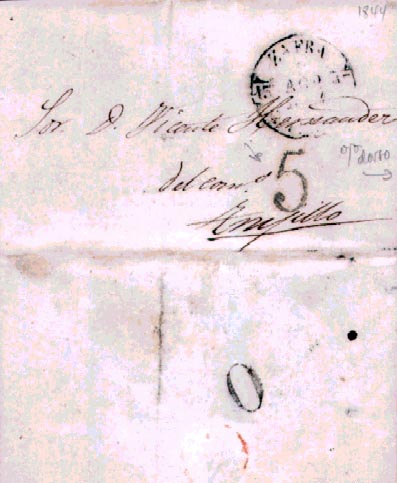 1844
ZAFRA
AGO
Sor. D. Vicente Hernandez
o/o dorso
del com.o 5
Trujillo
0